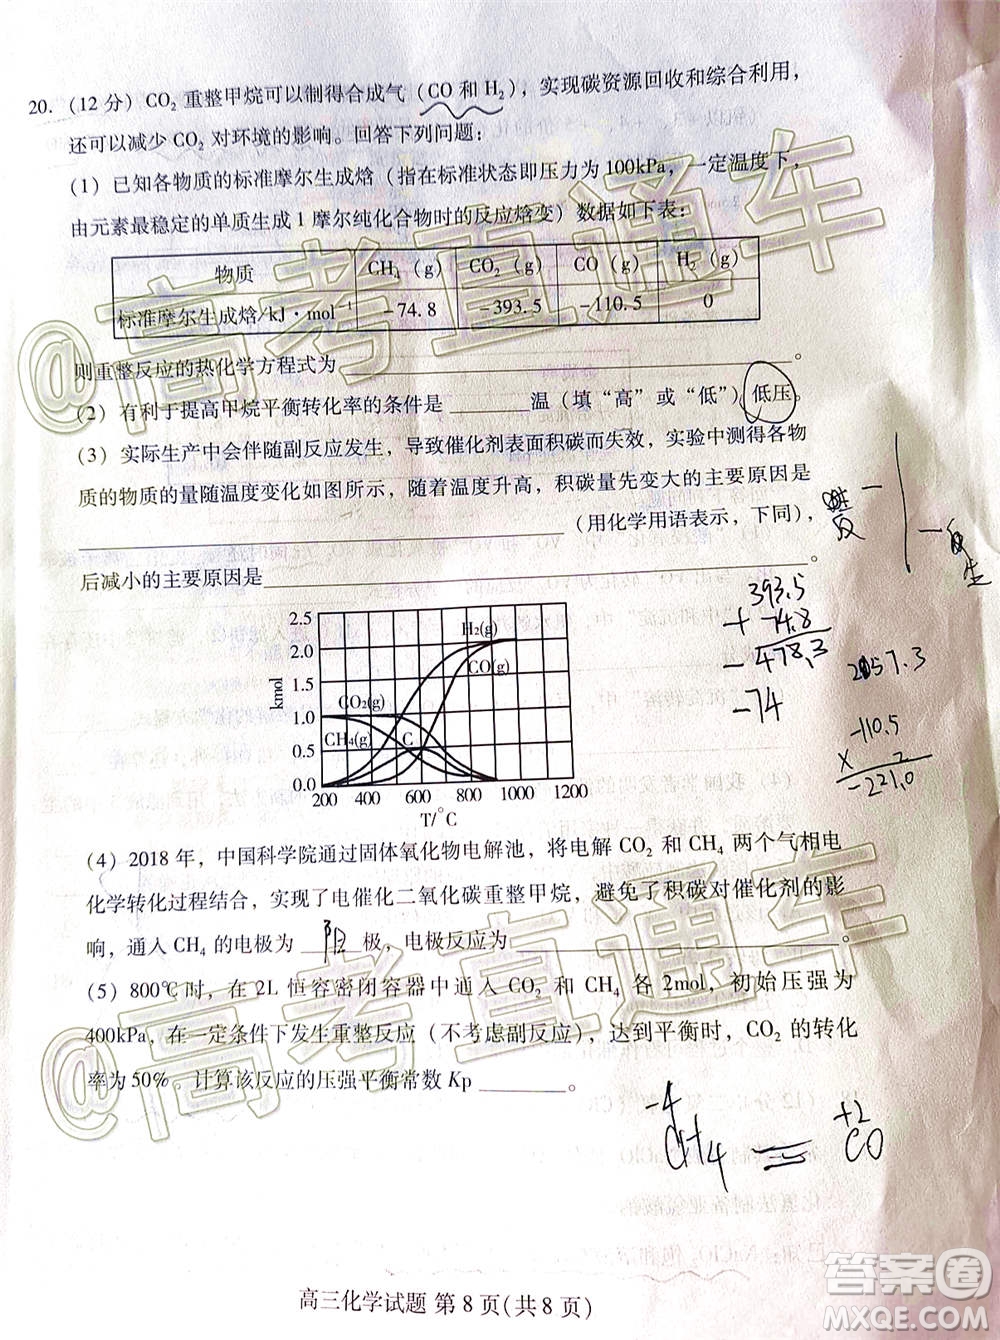 20. (12 分) CO₂ 重整甲烷可以制得合成气 (CO 和 H₂), 实现碳资源回收和综合利用,
还可以减少 CO₂ 对环境的影响。回答下列问题:
(1) 已知各物质的标准摩尔生成焓 (指在标准状态即压力为 100kPa, 一定温度下,
由元素最稳定的单质生成 1 摩尔纯化合物时的反应焓变) 数据如下表:
物质 CH₄ (g) CO₂ (g) CO (g) H₂ (g)
标准摩尔生成焓/kJ·mol⁻¹ -74.8 -393.5 -110.5 0
则重整反应的热化学方程式为________。
(2) 有利于提高甲烷平衡转化率的条件是________温 (填 “高” 或 “低”)、低压。
(3) 实际生产中会伴随副反应发生, 导致催化剂表面积碳而失效, 实验中测得各物
质的物质的量随温度变化如图所示, 随着温度升高, 积碳量先变大的主要原因是
________ (用化学用语表示, 下同),
后减小的主要原因是________。
反
反
生
393.5
+ 74.8
-478.3
-74
2157.3
-110.5
× 2
-221.0
kmol
2.5
2.0
1.5
1.0
0.5
0.0
H₂(g)
CO(g)
CO₂(g)
CH₄(g) C
200 400 600 800 1000 1200
T/°C
(4) 2018 年, 中国科学院通过固体氧化物电解池, 将电解 CO₂ 和 CH₄ 两个气相电
化学转化过程结合, 实现了电催化二氧化碳重整甲烷, 避免了积碳对催化剂的影
响, 通入 CH₄ 的电极为 阳 极, 电极反应为________。
(5) 800℃时, 在 2L 恒容密闭容器中通入 CO₂ 和 CH₄ 各 2mol, 初始压强为
400kPa, 在一定条件下发生重整反应 (不考虑副反应), 达到平衡时, CO₂ 的转化
率为 50%, 计算该反应的压强平衡常数 Kp ________。
-4 +2
CH₄ = CO
高三化学试题 第 8 页(共 8 页)
@高考直通车
@高考直通车
答案圈
MXQE.COM